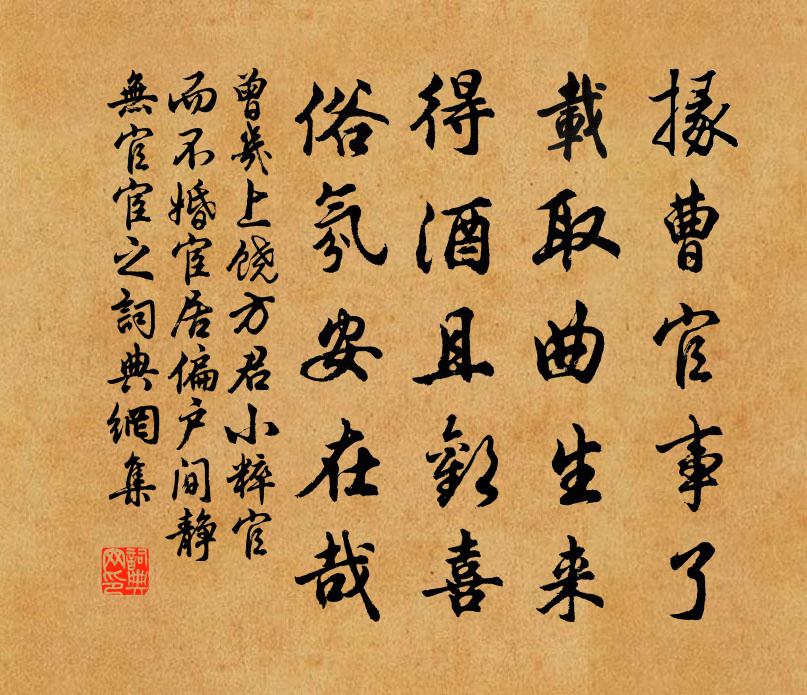 掾曹官事了
載取曲生来
得酒且歡喜
俗氛安在哉
曾幾上饒方君小粹官
而不婚宦居偏户間静
無官宦之詞典網集
詞典网印